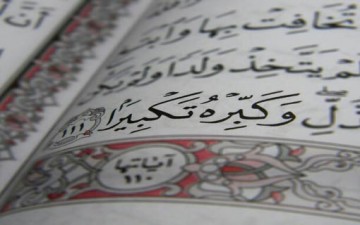 تُخَافِتْ بِهَا وَابْتَ
لَمْ يَتَّخِذْ وَلَدًا وَلَمْ يَكُ
ذُّلِّ وَكَبِّرْهُ تَكْبِيرًا ١١١
آياتها
١١٠